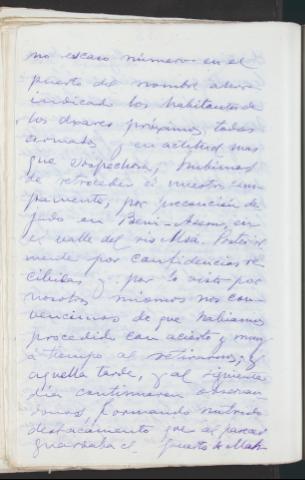 no escaso número en el
puerto del nombre antes
indicado los habitantes de
los aduares próximos, todos
armados y en actitud mas
que sospechosa, hubimos
de retroceder á nuestro cam-
pamento, por precaución de-
jado en Beni-Asem, en
el valle del rio Msa. Poster
mente por confidencias re-
cibidas y por lo visto por
nosotros mismos nos con-
vencimos de que habiamos
procedido con acierto y muy
á tiempo al retirarnos; y
aquella tarde, y al siguiente
dia continuaron
formando nutrido
destacamento que al parecer
guardaba el puerto de